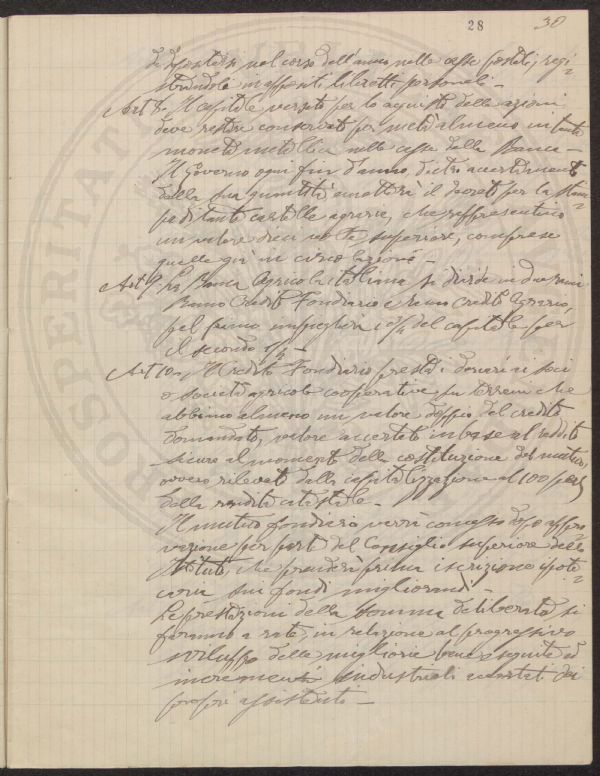 28 30
da depositarsi nel corso dell'anno nelle casse postali, regi=
strandola in appositi libretti personali. -
Art 8. Il capitale versato per lo acquisto delle azioni
deve restare conservato per metà almeno in tanta
moneta metallica nelle casse della Banca -
Il Governo ogni fin d'anno, dietro accertamento
della sua quantità emetterà il decreto per la stam=
pa di tante cartelle agrarie, che rappresentino
un valore dieci volte superiore, comprese
quelle già in circolazione -
Art 9. La Banca Agricola italiana si divide in due rami
Ramo Credito Fondiario e ramo Credito Agrario,
pel primo impiegherà i del capitale per
il secondo -
Art 10. Il Credito Fondiario presta i denari ai soci
o società agricole cooperative su terreni che
abbiano almeno un valore doppio del credito
domandato, valore accertato in base al reddito
sicuro al momento della costituzione del mutuo,
ovvero rilevato dalla capitalizzazione al 100 per
della rendita catastale -
Il mutuo fondiario verrà concesso dopo appro=
vazione per parte del Consiglio superiore dello
Istituto, che prenderà prima iscrizione ipote=
caria sui fondi migliorandi -
Le prestazioni della somma deliberata si
faranno a rate, in relazione al progressivo
sviluppo delle migliorie bene eseguite ed
incrementi industriali accertati dai
propri assistenti -
PROSPERITAT